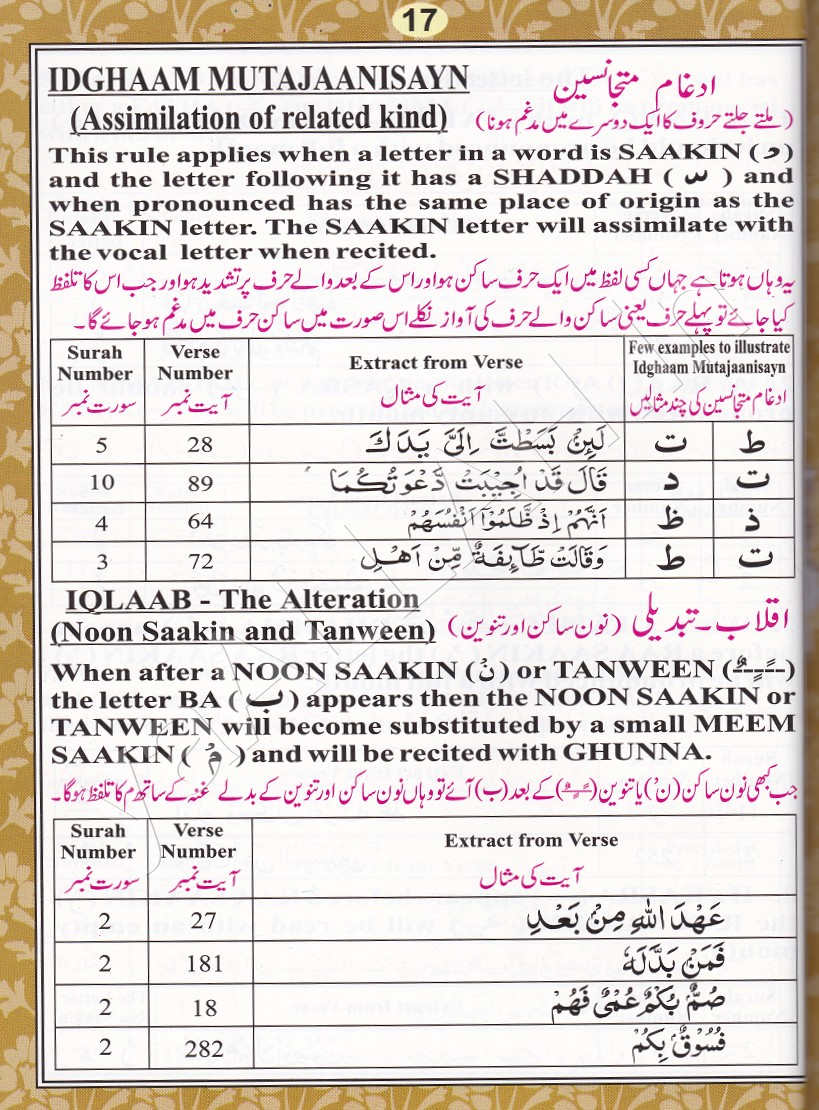 17
IDGHAAM MUTAJAANISAYN ادغام متجانسین
(Assimilation of related kind) (ملتے جلتے حروف کا ایک دوسرے میں مدغم ہونا)
This rule applies when a letter in a word is SAAKIN ( و )
and the letter following it has a SHADDAH ( س ) and
when pronounced has the same place of origin as the
SAAKIN letter. The SAAKIN letter will assimilate with
the vocal letter when recited.
یہ وہاں ہوتا ہے جہاں کسی لفظ میں ایک حرف ساکن ہو اور اس کے بعد والے حرف پر تشدید ہو اور جب اس کا تلفظ
کیا جائے تو پہلے حرف یعنی ساکن والے حرف کی آواز نکلے اس صورت میں ساکن حرف میں مدغم ہو جائے گا۔
Surah Number سورت نمبر | Verse Number آیت نمبر | Extract from Verse آیت کی مثال | Few examples to illustrate Idghaam Mutajaanisayn ادغام متجانسین کی چند مثالیں
5 | 28 | لَئِنْۢ بَسَطْتَّ اِلَیَّ یَدَكَ | ت | ط
10 | 89 | قَالَ قَدْ اُجِیْبَتْ دَّعْوَتُكُمَا | د | ت
4 | 64 | اَنَّهُمْ اِذْ ظَّلَمُوْۤا اَنْفُسَهُمْ | ظ | ذ
3 | 72 | وَقَالَتْ طَّآئِفَةٌ مِّنْ اَهْلِ | ط | ت
IQLAAB - The Alteration اقلاب۔ تبدیلی
(Noon Saakin and Tanween) (نون ساکن اور تنوین)
When after a NOON SAAKIN ( نْ ) or TANWEEN (ـًـ ـٍـ ـٌـ)
the letter BA ( ب ) appears then the NOON SAAKIN or
TANWEEN will become substituted by a small MEEM
SAAKIN ( مْ ) and will be recited with GHUNNA.
جب بھی نون ساکن (نْ) یا تنوین (ـًـٍـٌ) کے بعد (ب) آئے تو وہاں نون ساکن اور تنوین کے بدلے غنہ کے ساتھ م کا تلفظ ہوگا۔
Surah Number سورت نمبر | Verse Number آیت نمبر | Extract from Verse آیت کی مثال
2 | 27 | عَهْدَ اللّٰهِ مِنْۢ بَعْدِ
2 | 181 | فَمَنْۢ بَدَّلَهٗ
2 | 18 | صُمٌّۢ بُكْمٌ عُمْیٌ فَهُمْ
2 | 282 | فُسُوْقٌۢ بِكُمْ